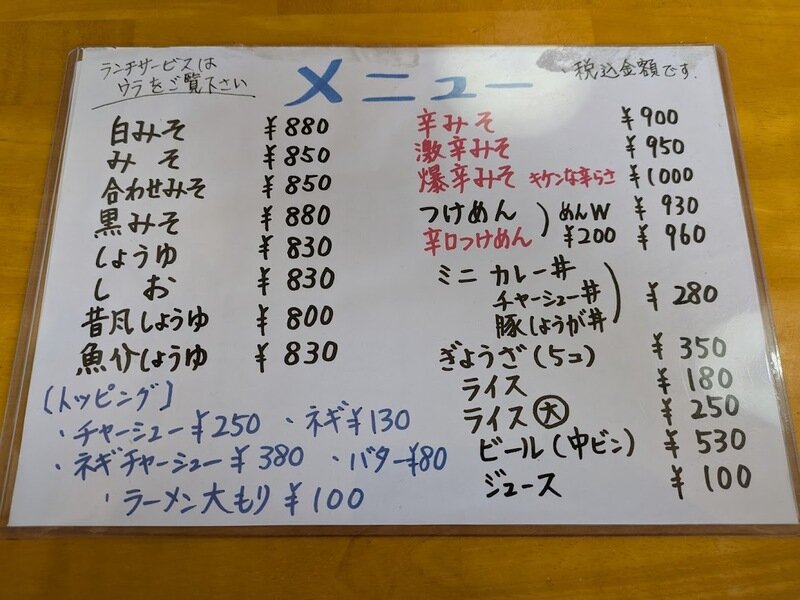 ランチサービスは
ウラをご覧下さい
メニュー
・税込金額です。
白みそ ¥880
みそ ¥850
合わせみそ ¥850
黒みそ ¥880
しょうゆ ¥830
しお ¥830
昔風しょうゆ ¥800
魚介しょうゆ ¥830
〔トッピング〕
・チャーシュー¥250 ・ネギ¥130
・ネギチャーシュー¥380 ・バター¥80
・ラーメン大もり ¥100
辛みそ ¥900
激辛みそ ¥950
爆辛みそ キケンな辛らさ ¥1000
つけめん ) めんW ¥930
辛口つけめん ¥200 ¥960
ミニ カレー丼
チャーシュー丼 ¥280
豚しょうが丼
ぎょうざ(5コ) ¥350
ライス ¥180
ライス大 ¥250
ビール(中ビン) ¥530
ジュース ¥100